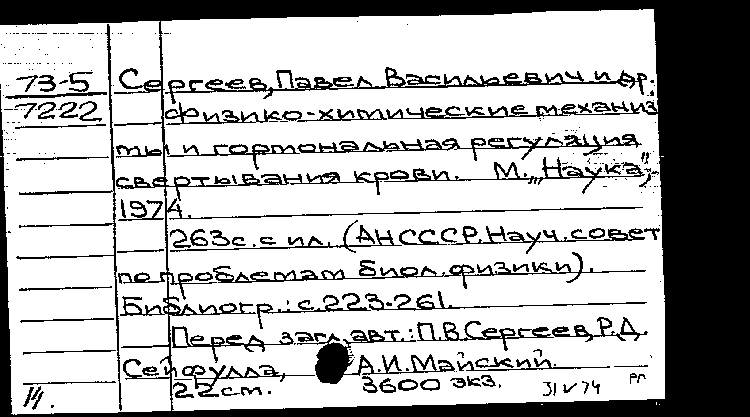 73-5 Сергеев, Павел Васильевич и др.
7222 Физико-химические механиз
мы и гормональная регуляция
свертывания крови. М., "Наука",
1974.
263с. с ил. (АН СССР. Науч. совет
по проблемам биол. физики).
Библиогр.: с. 223-261.
Перед загл. авт.: П.В. Сергеев, Р.Д.
Сейфулла, А.И. Майский.
22 см. 3600 экз. 31 V 74 РП
14.